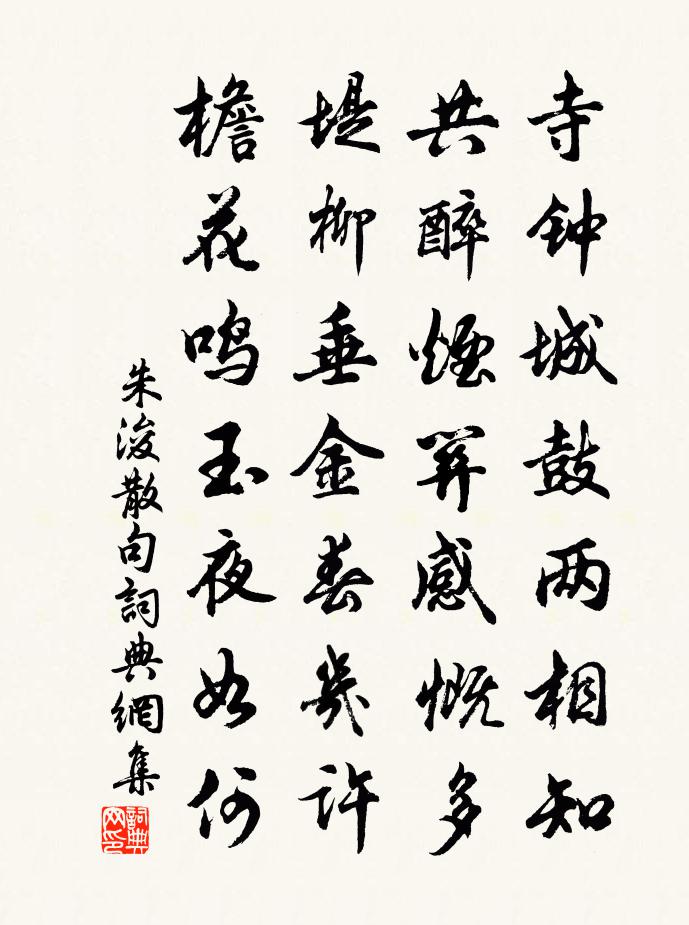 寺钟城鼓两相知
共醉煙感慨多
堤柳垂金春幾許
檐花鸣玉夜如何
朱浚散句詞典網集
詞典
网印